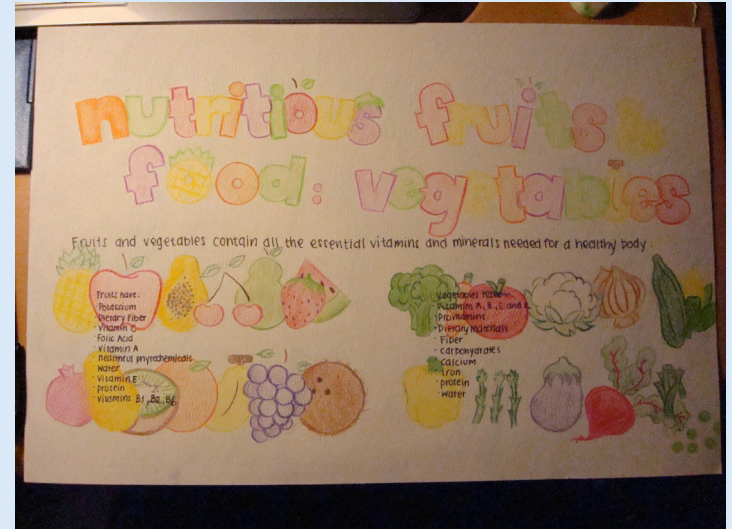 nutritious fruits &
food: vegetables
Fruits and vegetables contain all the essential vitamins and minerals needed for a healthy body.
Fruits have:
· Potassium
· Dietary Fiber
· Vitamin C
· Folic Acid
· Vitamin A
· healthful phyrochemicals
· Water
· Vitamin E
· protein
· Vitamins B1, B2, B6
Vegetables have:
· Vitamin A, B, C and
· Provitamins
· Dietary Materials
· Fiber
· Carbohydrates
· Calcium
· Iron
· protein
· water